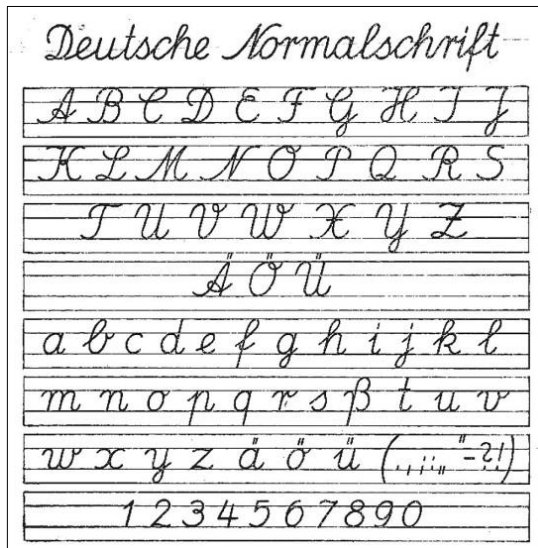 Deutsche Normalschrift
A B C D E F G H I J
K L M N O P Q R S
T U V W X Y Z
Ä Ö Ü
a b c d e f g h i j k l
m n o p q r s ß t u v
w x y z ä ö ü (., ; : „ " - ? !)
1 2 3 4 5 6 7 8 9 0